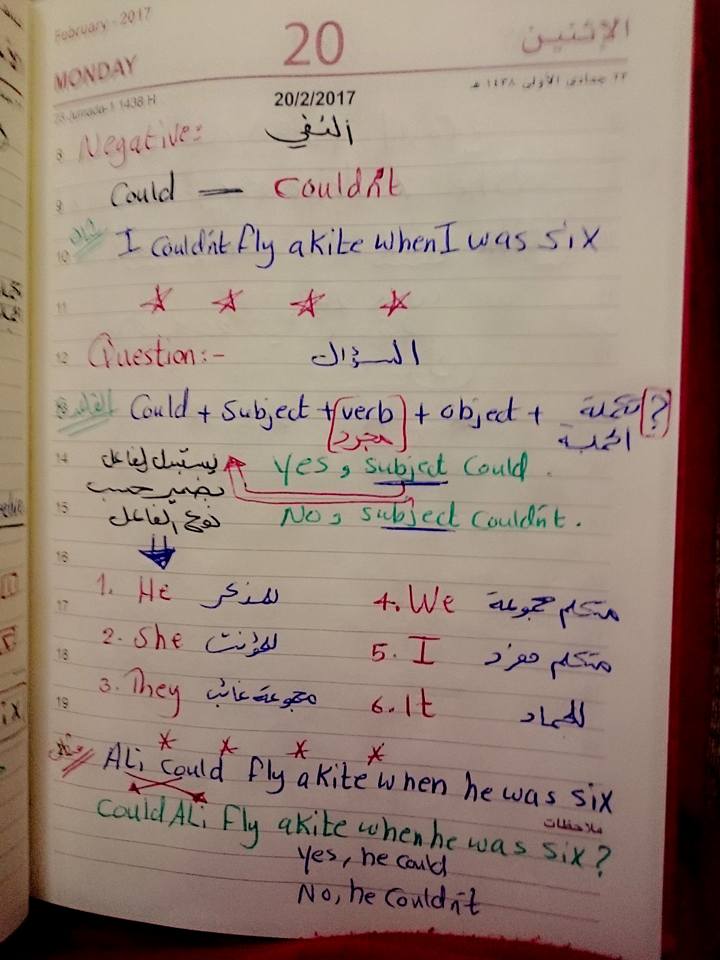 February - 2017 20 الإثنين
MONDAY ٢٣ جمادى الأولى ١٤٣٨ هـ
23-Jumada-1 1438 H 20/2/2017
8 Negative: النفي
9 Could — Couldn't
10 مثال I couldn't fly a kite when I was six
11
12 Question:- السؤال
القاعدة Could + subject + (verb) + object + تكملة (?)
مجرد الجملة
14 يستبدل الفاعل Yes, subject could.
بضمير حسب
15 نوع الفاعل No, subject couldn't.
16
1. He للمذكر 4. We متكلم مجموعة
17
2. She للمؤنث 5. I متكلم مفرد
18
3. They مجموعة غائب 6. It للجماد
19
مثال ALi could fly a kite when he was six
ملاحظات
Could ALi fly a kite when he was six?
Yes, he could
No, he couldn't